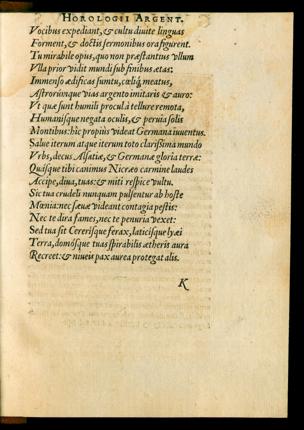 HOROLOGII ARGENT.
Vocibus expediant, & cultu diuite linguas
Forment, & doctis sermonibus ora figurent.
Tu mirabile opus, quo non præstantius vllum
Vlla prior vidit mundi sub finibus ætas:
Immenso ædificas sumtu, cœliq; meatus,
Astrorumque vias argento imitaris & auro:
Vt quæ sunt humili procul à tellure remota,
Humanisque negata oculis, & peruia solis
Montibus: hîc propiùs videat Germana iuuentus.
Salue iterum atque iterum toto clarissima mundo
Vrbs, decus Alsatiæ, & Germanæ gloria terræ:
Quasque tibi canimus Nicræo carmine laudes
Accipe, diua, tuas: & miti respice vultu.
Sic tua crudeli nunquam pulsentur ab hoste
Mœnia: nec sæuæ videant contagia pestis:
Nec te dira fames, nec te penuria vexet:
Sed tua sit Cererisque ferax, laticisque lyæi
Terra, domosque tuas spirabilis ætheris aura
Recreet: & niueis pax aurea protegat alis.
K